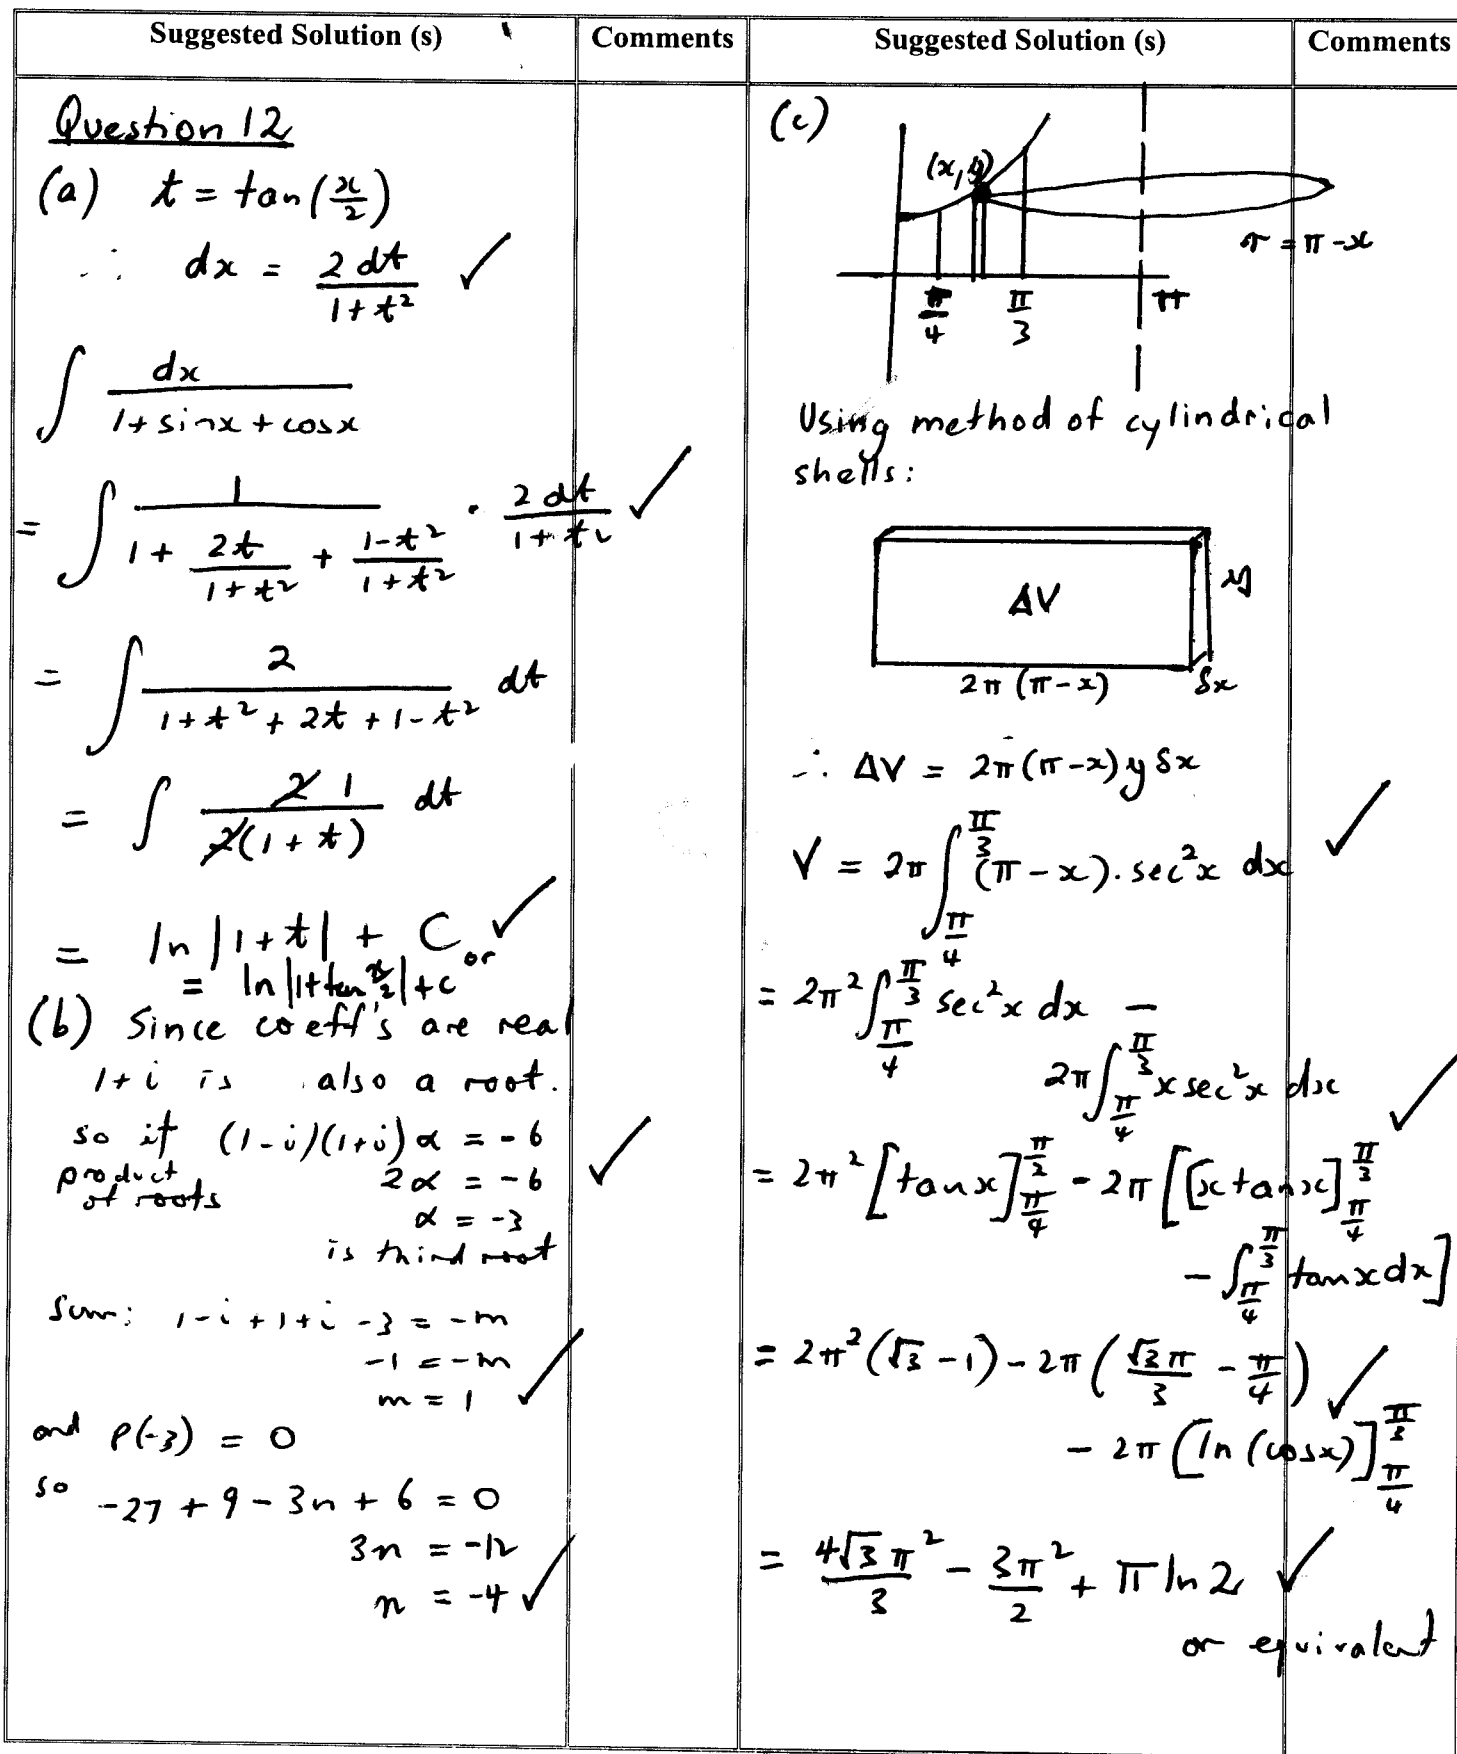 Suggested Solution (s)
Comments
Question 12
(a) t = tan(x/2)
∴ dx = 2 dt / (1 + t²) ✓
∫ dx / (1 + sinx + cosx)
= ∫ 1 / (1 + 2t/(1 + t²) + (1-t²)/(1 + t²)) · 2 dt / (1 + t²) ✓
= ∫ 2 / (1 + t² + 2t + 1 - t²) dt
= ∫ 2 1 / 2(1 + t) dt
= ln |1 + t| + C or ✓
= ln |1+tan x/2| + c
(b) Since coeff's are real
1+i is also a root.
so if (1-i)(1+i)α = -6
product of roots
2α = -6 ✓
α = -3
is third root
Sum: 1-i + 1+i -3 = -m
-1 = -m
m = 1 ✓
and P(-3) = 0
so -27 + 9 - 3n + 6 = 0
3n = -12
n = -4 ✓
Suggested Solution (s)
Comments
(c)
(x, y)
r = π - x
π/4 π/3 π
Using method of cylindrical
shells:
ΔV
y
2π (π - x) δx
∴ ΔV = 2π(π-x) y δx
V = 2π ∫_{π/4}^{π/3} (π - x). sec²x dx ✓
= 2π² ∫_{π/4}^{π/3} sec²x dx -
2π ∫_{π/4}^{π/3} x sec²x dx ✓
= 2π² [tan x]_{π/4}^{π/2} - 2π [[x tan x]_{π/4}^{π/3}
- ∫_{π/4}^{π/3} tan x dx]
= 2π² (√3 - 1) - 2π (√3π/3 - π/4) ✓
- 2π [ln (cosx)]_{π/4}^{π/3}
= 4√3π²/3 - 3π²/2 + π ln 2 ✓
or equivalent